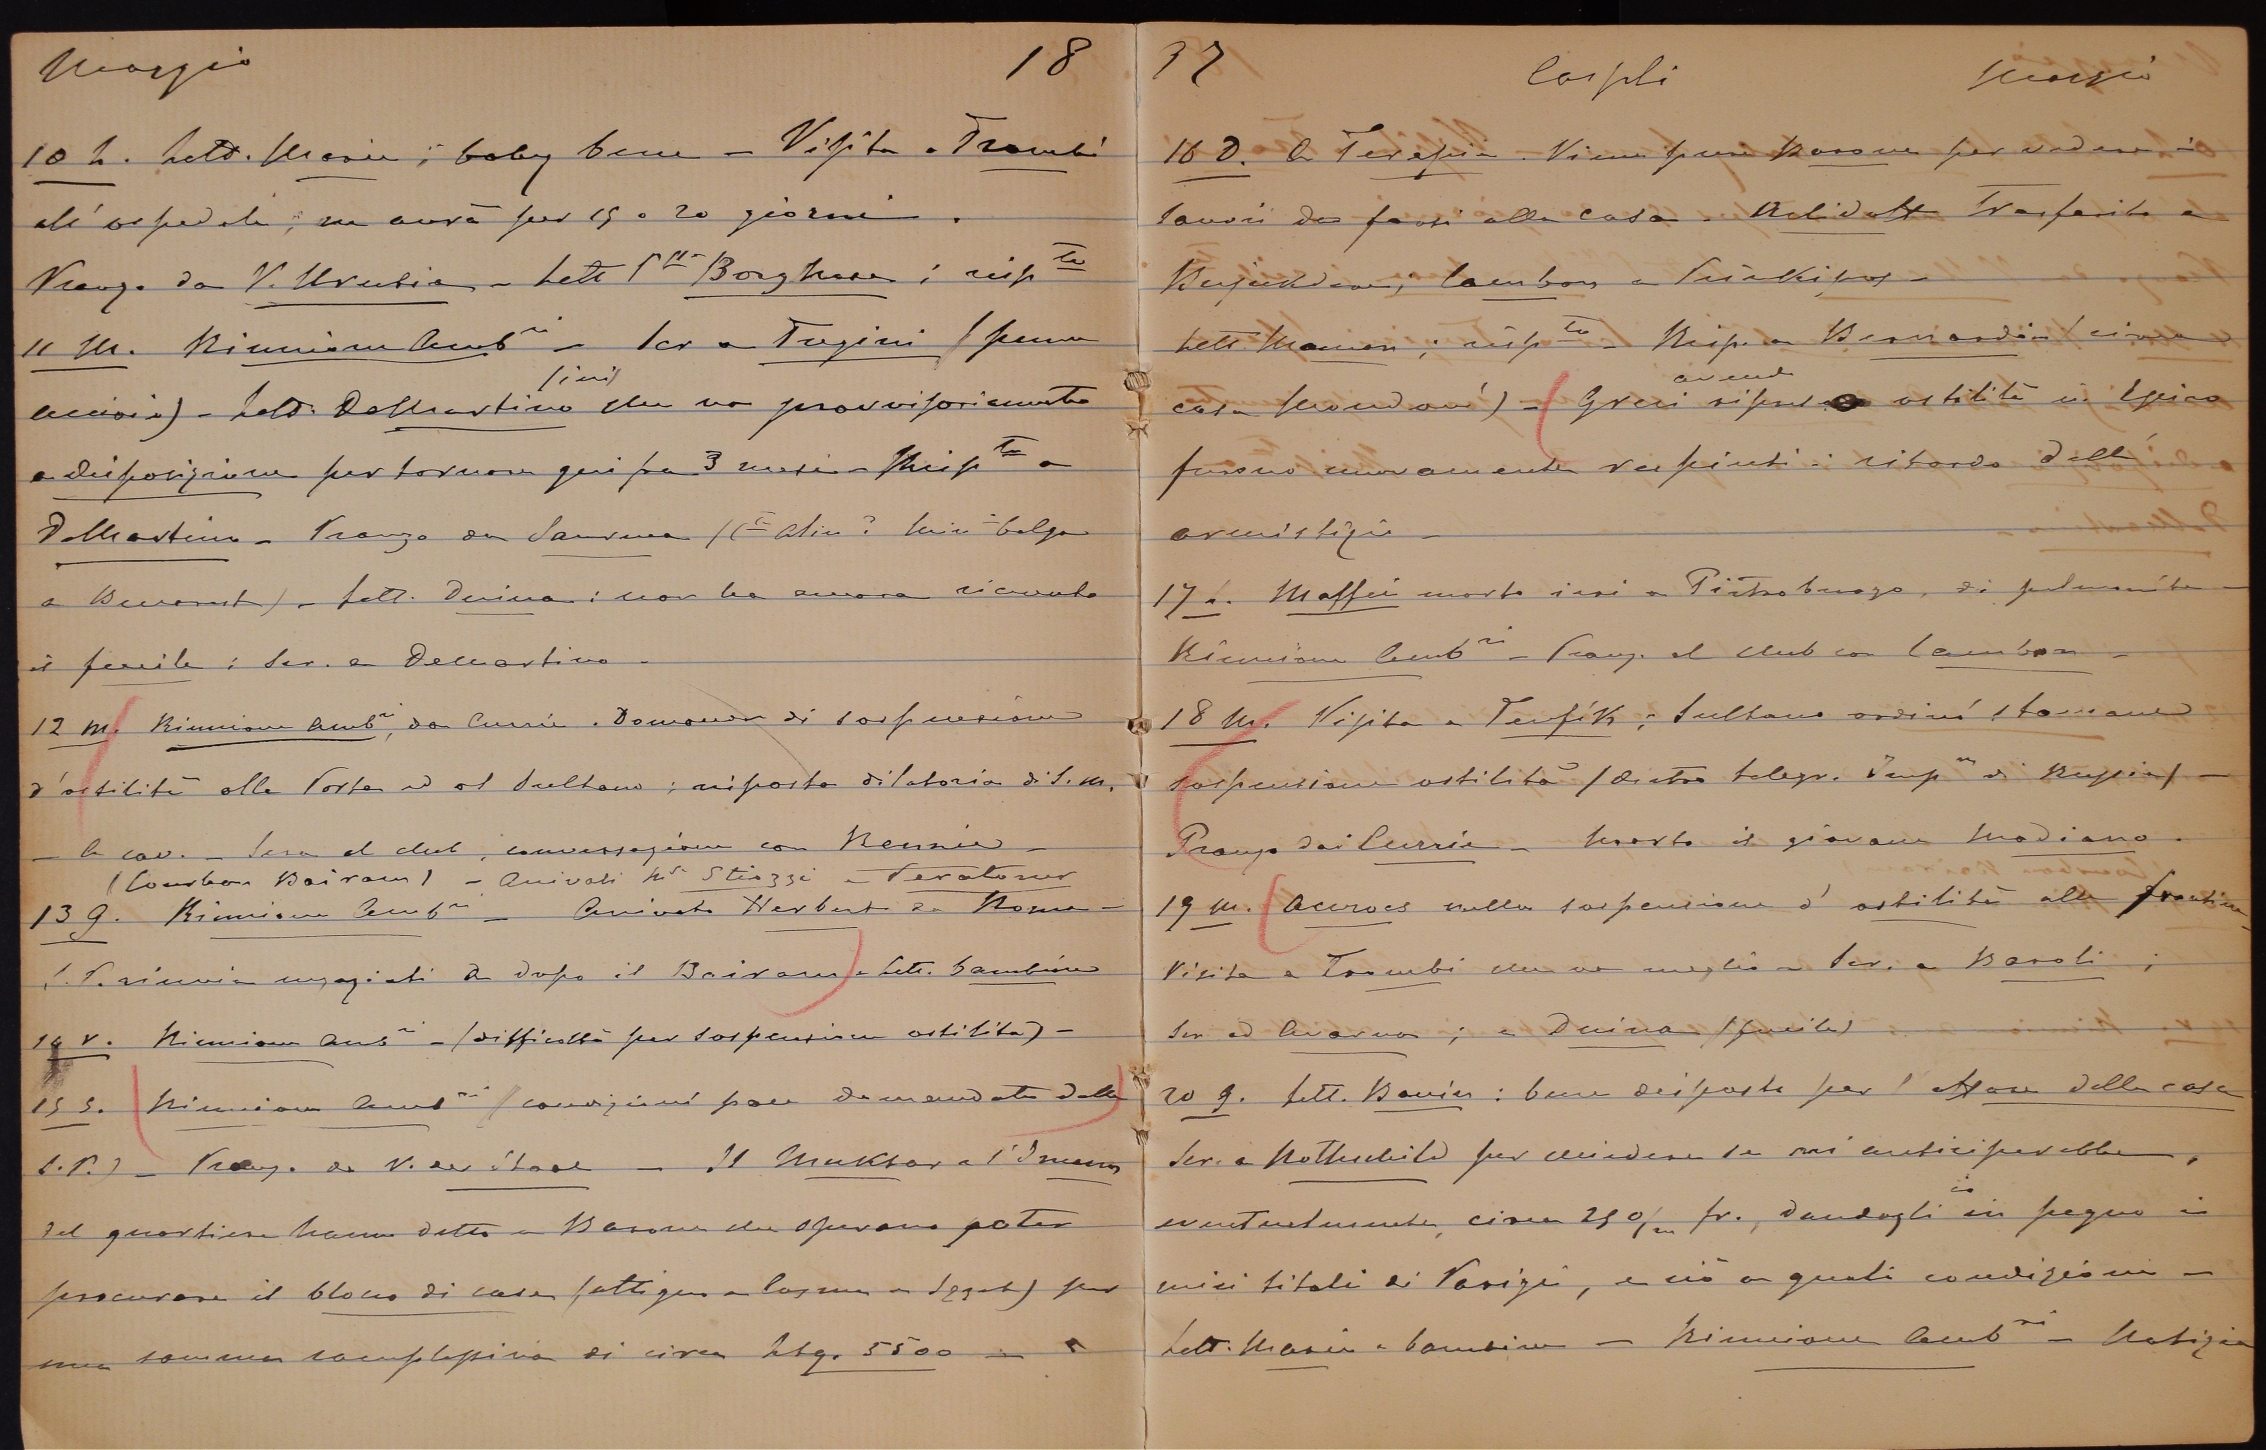 Maggio 18
10 L. Lett. Maria; baby bene – Visita a Trombi
all'ospedale; ne avrà per 15 o 20 giorni.
Pranzo da V. Hrubia – Lett. Pssa Borghese; rispto
11 M. Riunione Ambri – Scr. a Tugini (penna
acciaio) – Lett. DeMartino (ieri) che va provvisoriamente
a disposizione per tornare qui fra 3 mesi – Rispto a
DeMartino – Pranzo da Saurma (
a Bucarest) – Lett. Duina: non ha ancora ricevuto
il fucile: Scr. a DeMartino –
12 M. Riunione Ambri, da Currie. Domanda di sospensione
d'ostilità alla Porta ed al Sultano; risposta dilatoria di S.M.
– A cav. – Sera al club, conversazione con Rennie –
(Courban Bairam) – Arrivati Mse Stiozzi e
13 G. Riunione Ambri – Arrivato Herbert da Roma –
S.P. rinvia negoziati a dopo il Bairam – Lett. bambine
14 V. Riunione Ambri – (difficoltà per sospensione ostilità) –
15 S. Riunione Ambri (condizioni pace domandate dalla
S.P.) – Pranz. da V. der Staal – Il Muktar e l'Imam
del quartiere hanno detto a Barone che sperano poter
procurare il blocco di case (attigue a Casma a Izzet) per
una somma complessiva di circa Lsg. 5500 –
97 Cospli Maggio
16 D. A Terapia. Viene pure Barone per vedere i
lavori da farsi alla casa. Trasferito a
Bujukdere; Cambon a Prinkipos –
Lett. ; rispto – Risp. a Bernardi (circa
casa Mondovì) – Greci avendo ripreso ostilità in Epiro
furono nuovamente respinti: ritardo dell'
armistizio –
17 L. Maffei morto ieri a Pietroburgo, di polmonite –
Riunione Ambri – Pranz. al club con Cambon –
18 M. Visita a Tewfik; Sultano ordinò stamane
sospensione ostilità (dietro telegr. Impre di Russia) –
Pranzo dai Currie – Morto il giovane Modiano.
19 M. Accrocs nella sospensione d'ostilità alla frontiera
Visita a Trombi che va meglio – Scr. a Baroli;
Scr. ad Avarna; a Duina (fucile)
20 G. Lett. Bavier: bene disposto per l'affare della casa
Scr. a Rothschild per chiedere se mi anticiperebbe,
eventualmente, circa 250/m fr., dandogli io in pegno i
miei titoli di Parigi, e ciò a quali condizioni –
Lett. Maria e bambine – Riunione Ambri – Notizia